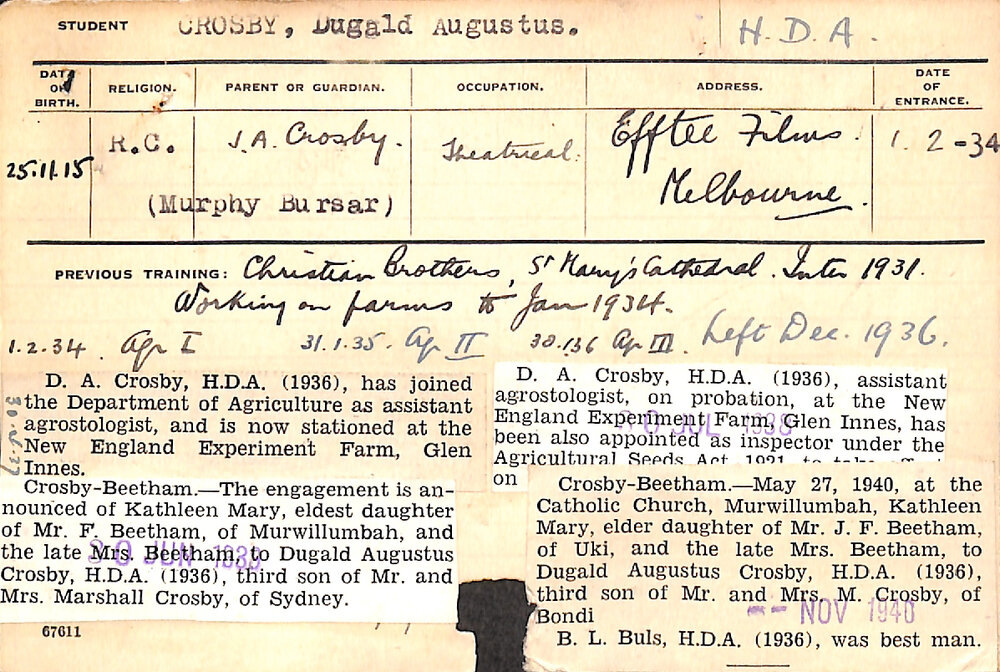 STUDENT CROSBY, Dugald Augustus. H.D.A.
DATE OF BIRTH. RELIGION. PARENT OR GUARDIAN. OCCUPATION. ADDRESS. DATE OF ENTRANCE.
25.11.15 R.C. J.A. Crosby. Theatrical. Efftee Films 1. 2 -34
(Murphy Bursar) Melbourne.
PREVIOUS TRAINING: Christian Brothers, St Mary's Cathedral. Inter 1931.
Working on farms to Jan 1934.
1.2.34. Agr I 31.1.35. Agr II 30.1.36 Agr III. Left Dec. 1936.
D. A. Crosby, H.D.A. (1936), has joined
the Department of Agriculture as assistant
agrostologist, and is now stationed at the
New England Experiment Farm, Glen
Innes.
D. A. Crosby, H.D.A. (1936), assistant
agrostologist, on probation, at the New
England Experiment Farm, Glen Innes, has
been also appointed as inspector under the
Agricultural Seeds Act, 1921, to take
on
JUL 1938
Crosby-Beetham.—The engagement is an-
nounced of Kathleen Mary, eldest daughter
of Mr. F. Beetham, of Murwillumbah, and
the late Mrs. Beetham, to Dugald Augustus
Crosby, H.D.A. (1936), third son of Mr. and
Mrs. Marshall Crosby, of Sydney.
JUN
Crosby-Beetham.—May 27, 1940, at the
Catholic Church, Murwillumbah, Kathleen
Mary, elder daughter of Mr. J. F. Beetham,
of Uki, and the late Mrs. Beetham, to
Dugald Augustus Crosby, H.D.A. (1936),
third son of Mr. and Mrs. M. Crosby, of
Bondi
-- NOV 1940
B. L. Buls, H.D.A. (1936), was best man.
67611